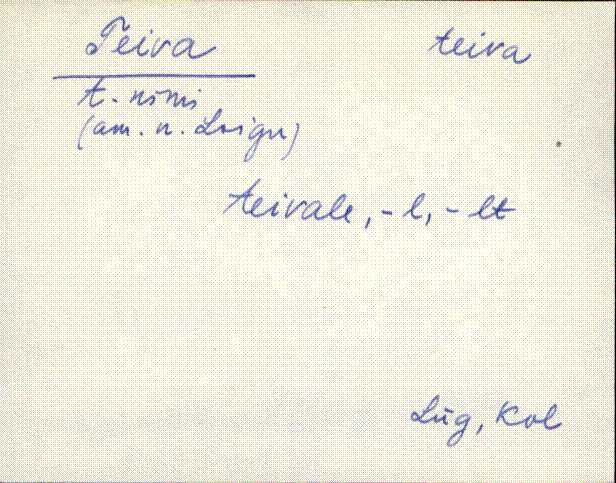 Teiva teiva
t. nimi
(am. n. Loigu)
teivale, -l, -lt
Lüg, Kol